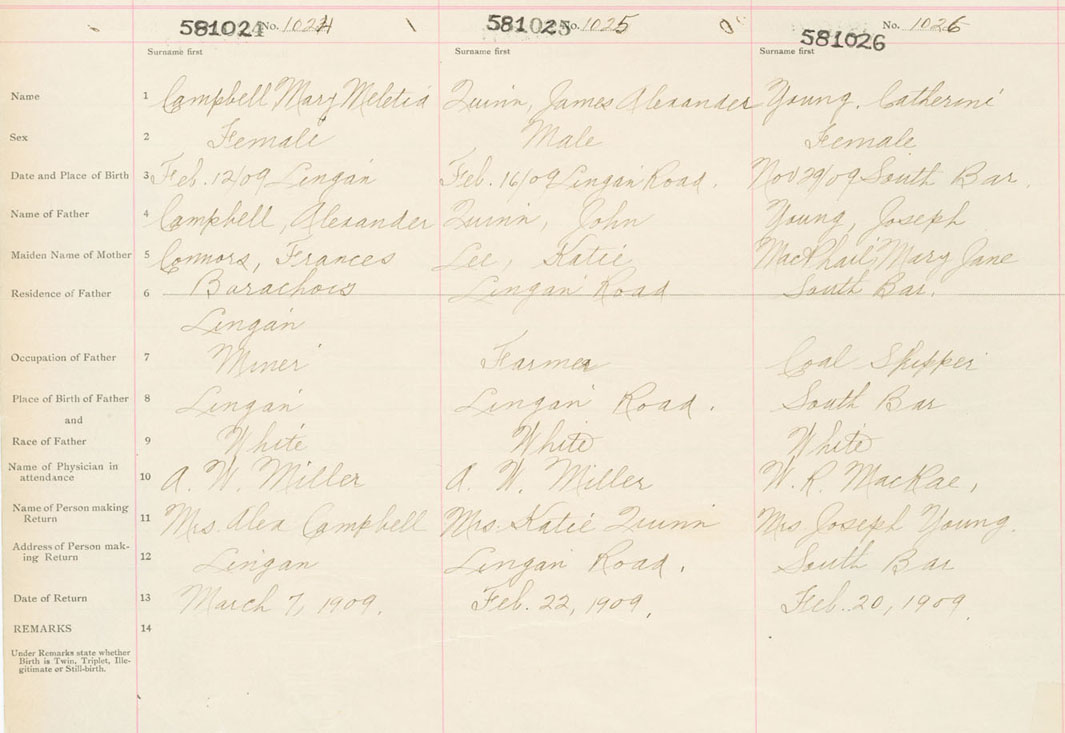 581024 No. 1024 581025 No. 1025 581026 No. 1026
Surname first Surname first Surname first
Name 1 Campbell, Mary Meletia Quinn, James Alexander Young, Catherine
Sex 2 Female Male Female
Date and Place of Birth 3 Feb. 12/09 Lingan Feb. 16/09 Lingan Road. Nov 29/09 South Bar.
Name of Father 4 Campbell, Alexander Quinn, John Young, Joseph
Maiden Name of Mother 5 Connors, Frances Lee, Katie MacPhail, Mary Jane
Residence of Father 6 Barachois Lingan Road South Bar.
Lingan
Occupation of Father 7 Miner Farmer Coal Shipper
Place of Birth of Father 8 Lingan Lingan Road. South Bar
and
Race of Father 9 White White White
Name of Physician in
attendance 10 A. W. Miller A. W. Miller W. R. MacRae,
Name of Person making
Return 11 Mrs. Alex Campbell Mrs. Katie Quinn Mrs Joseph Young.
Address of Person mak-
ing Return 12 Lingan Lingan Road. South Bar
Date of Return 13 March 7, 1909. Feb. 22, 1909. Feb. 20, 1909
REMARKS 14
Under Remarks state whether
Birth is Twin, Triplet, Ille-
gitimate or Still-birth.